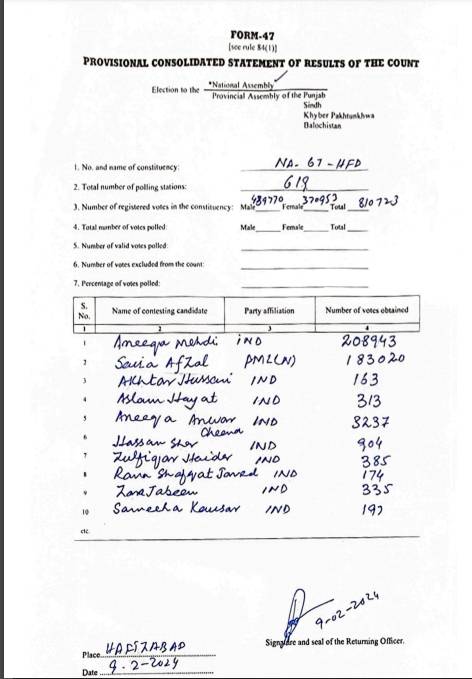 FORM-47
[see rule 84(1)]
PROVISIONAL CONSOLIDATED STATEMENT OF RESULTS OF THE COUNT
Election to the *National Assembly
Provincial Assembly of the Punjab
Sindh
Khyber Pakhtunkhwa
Balochistan
1. No. and name of constituency: NA-67-HFD
2. Total number of polling stations: 619
3. Number of registered votes in the constituency: Male 439770 Female 370953 Total 810723
4. Total number of votes polled: Male Female Total
5. Number of valid votes polled:
6. Number of votes excluded from the count:
7. Percentage of votes polled:
S. No. Name of contesting candidate Party affiliation Number of votes obtained
1 2 3 4
1 Aneeqa Mehdi IND 208943
2 Saira Afzal PML(N) 183020
3 Akhtar Hussain IND 163
4 Aslam Hayat IND 313
5 Aneeqa Anwar Cheena IND 3237
6 Hassan Sher IND 904
7 Zulfiqar Haider IND 385
8 Rana Shafqat Javed IND 174
9 Zara Jabeen IND 335
10 Sameeha Kousar IND 192
etc.
9-02-2024
Signature and seal of the Returning Officer.
Place HAFIZABAD
Date 9.2-2024